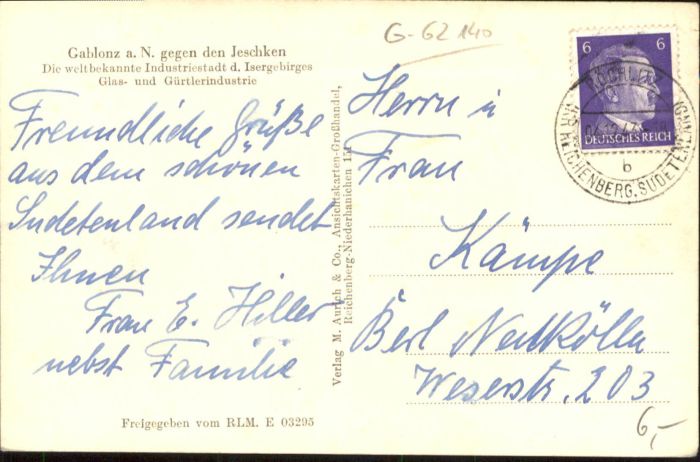 G-62140
Gablonz a. N. gegen den Jeschken
Die weltbekannte Industriestadt d. Isergebirges
Glas- und Gürtlerindustrie
Freundliche Grüße
aus dem schönen
Sudetenland sendet
Ihnen
Frau E. Hiller
nebst Familie
Freigegeben vom RLM. E 03295
Verlag M. Aurich & Co., Ansichtskarten-Großhandel,
Reichenberg-Niederhanichen 154
6 6
DEUTSCHES REICH
b
REICHENBERG, SUDETENLAND
Herrn u
Frau
Kämpe
Berl Neukölln
Weserstr. 203
6,-